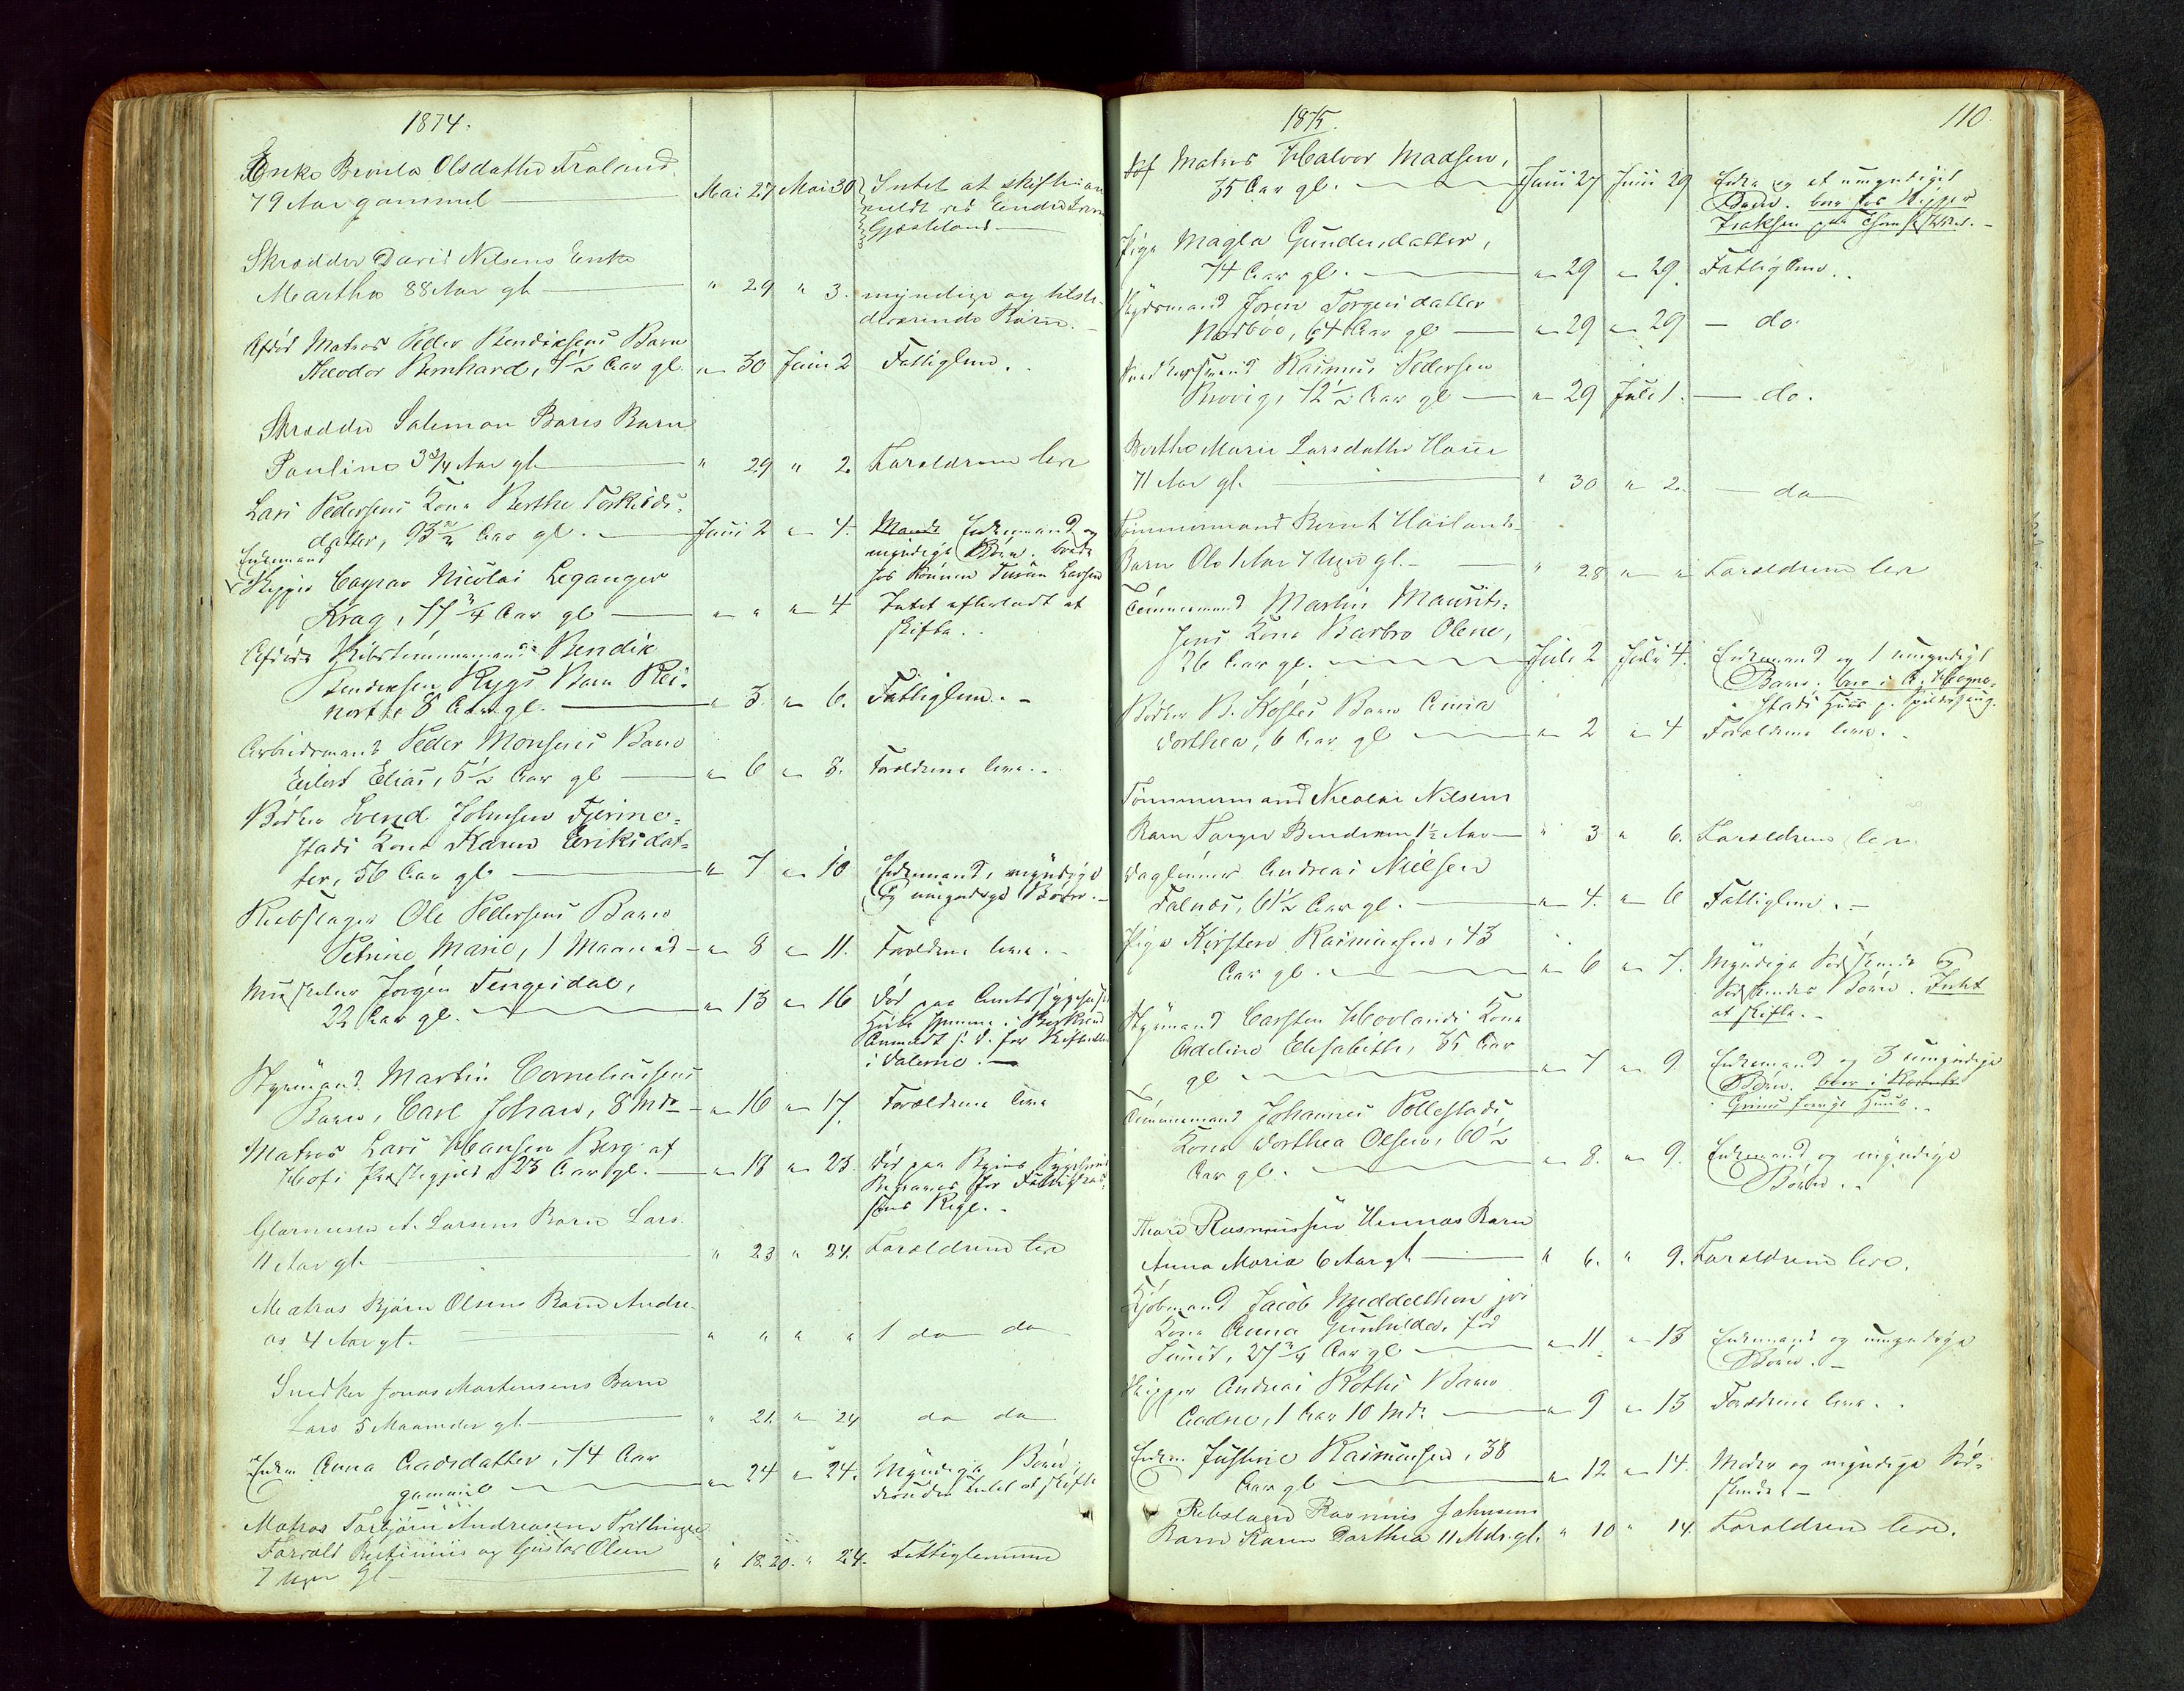 1874.
Enke Olsdatter Froland
79 Aar gammel Mai 27 Mai 30 Intet at skifte an
meldt ved Endre
Gjøsteland
Skrædder David Nilsens Enke
Martha 88 Aar gl " 29 " 3. myndige og tilste-
deværende Børn.
Afdød Matros Peder Bendixsens Barn
Theodor Bernhard, 4½ Aar gl. " 30 Juni 2 Fattiglem.
Skrædder Salemon Baris Barn
Pauline 3¾ Aar gl " 29 " 2. Foraldrene leve
Lars Pedersens Kone Berthe Torkilds-
datter, Aar gl. Juni 2 " 4. Enkemand og
myndige Børn. boede
hos Sønnen Larsen
Enkemand
Skipper Caspar Nicolai Leganger
Krag, 77¾ Aar gl " " " 4 Intet efterladt at
skifte.
Afdøde Skibstømmermand Bendix
Bendixsen Rygs Barn Rei-
nerthe 8 Aar gl. " 3. " 6. Fattiglem.
Arbeidsmand Peder Monsens Barn
Eilert Elias, 5½ Aar gl " 6 " 8. Forældrene leve.
Bødker Svend Johnsen Tjerine-
stads Kone Karen Eriksdat-
ter, 56 Aar gl " 7 " 10 Enkemand, myndige
og umyndige Børn.
Reebslager Ole Pedersens Barn
Petrine Marie, 1 Maaned " 8 " 11. Forældrene leve.
Jørgen Tengesdal,
22 Aar gl. " 13 " 16 Død paa Amtssygehuset
Hørte hjemme i
Anmeldt s. D. for Skifteretten
i Dalerne.
Styrmand Martin Corneliussens
Barn, Carl Johan, 8 Mdr " 16 " 17. Forældrene leve
Matros Lars Hansen Berg af
Hofs Præstegjeld 23 Aar gl. " 18 " 23. Død paa Byens Sygehuus
Begraves for Fattigkas-
sens Regn.
Glarmester A. Larsens Barn Lars
11 Aar gl. " 23 " 24. Foraldrene leve
Matros Bjørn Olsens Barn Andre-
as 4 Aar gl. " " " " 1 do do
Snedker Jonas Mortensens Barn
Lars 5 Maaneder gl. " 21. " 24 do do
Enken Anna Aadsdatter, 74 Aar
gammel " 24 " 24. Myndige Børn,
desuden Intet at skifte
Matros Torbjørn Andreasens Tvillinger
Torvald og Gustav Olsen
7 Uger gl " 18. 20. " 24. Fattiglemmer
1875. 110.
Matros Halvor Madsen,
35 Aar gl. Juni 27 Juni 29 Enke og et umyndiget
Barn. boer hos Skipper
Isaksen paa
Pige Magla Gundersdatter,
74 Aar gl. " 29 " 29. Fattiglem.
Joren Torgersdatter
Nordbøe, 64 Aar gl " 29 " 29 do.
Rasmus Pedersen
Revig, 72½ Aar gl " 29 Juli 1. do.
Berthe Marie Larsdatter Haue
71 Aar gl. " 30 " 2. do
Tømmermand Bernt Høilands
Barn Ole 1 Aar 7 Uger gl. " 28 " " Foraldrene leve
Tømmermand Martin Maurits-
sens Kone Barbro Olene,
26 Aar gl. Juli 2 Juli 4. Enkemand og 1 umyndigt
Barn. boer i A. Hogne-
stads Huus p.
Bødker B. Kostes Barn Amia
Dorthea, 6 Aar gl " 2 " 4 Forældrene leve.
Tømmermand Nicolai Nilsens
Barn Torger 1½ Aar " 3 " 6. Foraldrene leve
Daglønner Andreas Nielsen
Falnæs, 61½ Aar gl. " 4. " 6 Fattiglem.
Pige Kirsten Rasmussen, 43
Aar gl. " 6 " 7. Myndige Sødskende og
Sødskendes Børn. Intet
at skifte.
Styrmand Carsten Hovlands Kone
Adeline Elisabeth, 35 Aar
gl " 7 " 9 Enkemand og 3 umyndige
Børn. boer i
Huus.
Tømmermand Johannes Pollestads
Kone Dorthea Olsen, 60½
Aar gl. " 8. " 9. Enkemand og myndige
Børn.
Thore Rasmussen Hennas Barn
Anna Maria 6 Aar gl " 6. " 9. Foraldrene leve.
Kjøbmand Jacob Middelthon jr's
Kone Anna Gunhilda, fød
Smidt, 27¾ Aar gl " 11 " 13 Enkemand og umyndige
Børn.
Skipper Andreas Roths Barn
Aadne, 1 Aar 10 Mdr " 9 " 13 Forældrene leve.
Enken Justine Rasmussen, 38
Aar gl " 12 " 14. Moder og myndige Sød-
skende.
Rebslager Rasmus Johnsens
Barn Karen Dorthea 11 Mdr. gl. " 10 " 14. Foraldrene leve.